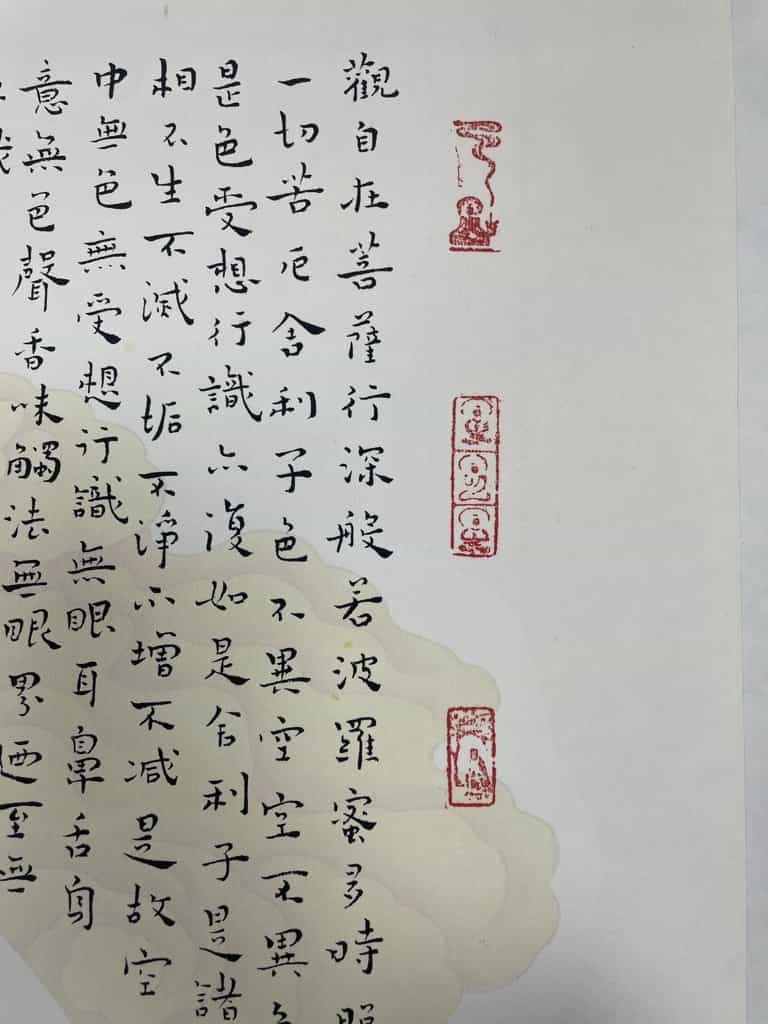 觀自在菩薩行深般若波羅蜜多時照
一切苦厄舍利子色不異空空不異色
是色受想行識亦復如是舍利子是諸
相不生不滅不垢不淨不增不减是故空
中無色無受想行識無眼耳鼻舌身
意無色聲香味觸法無眼界迺至無